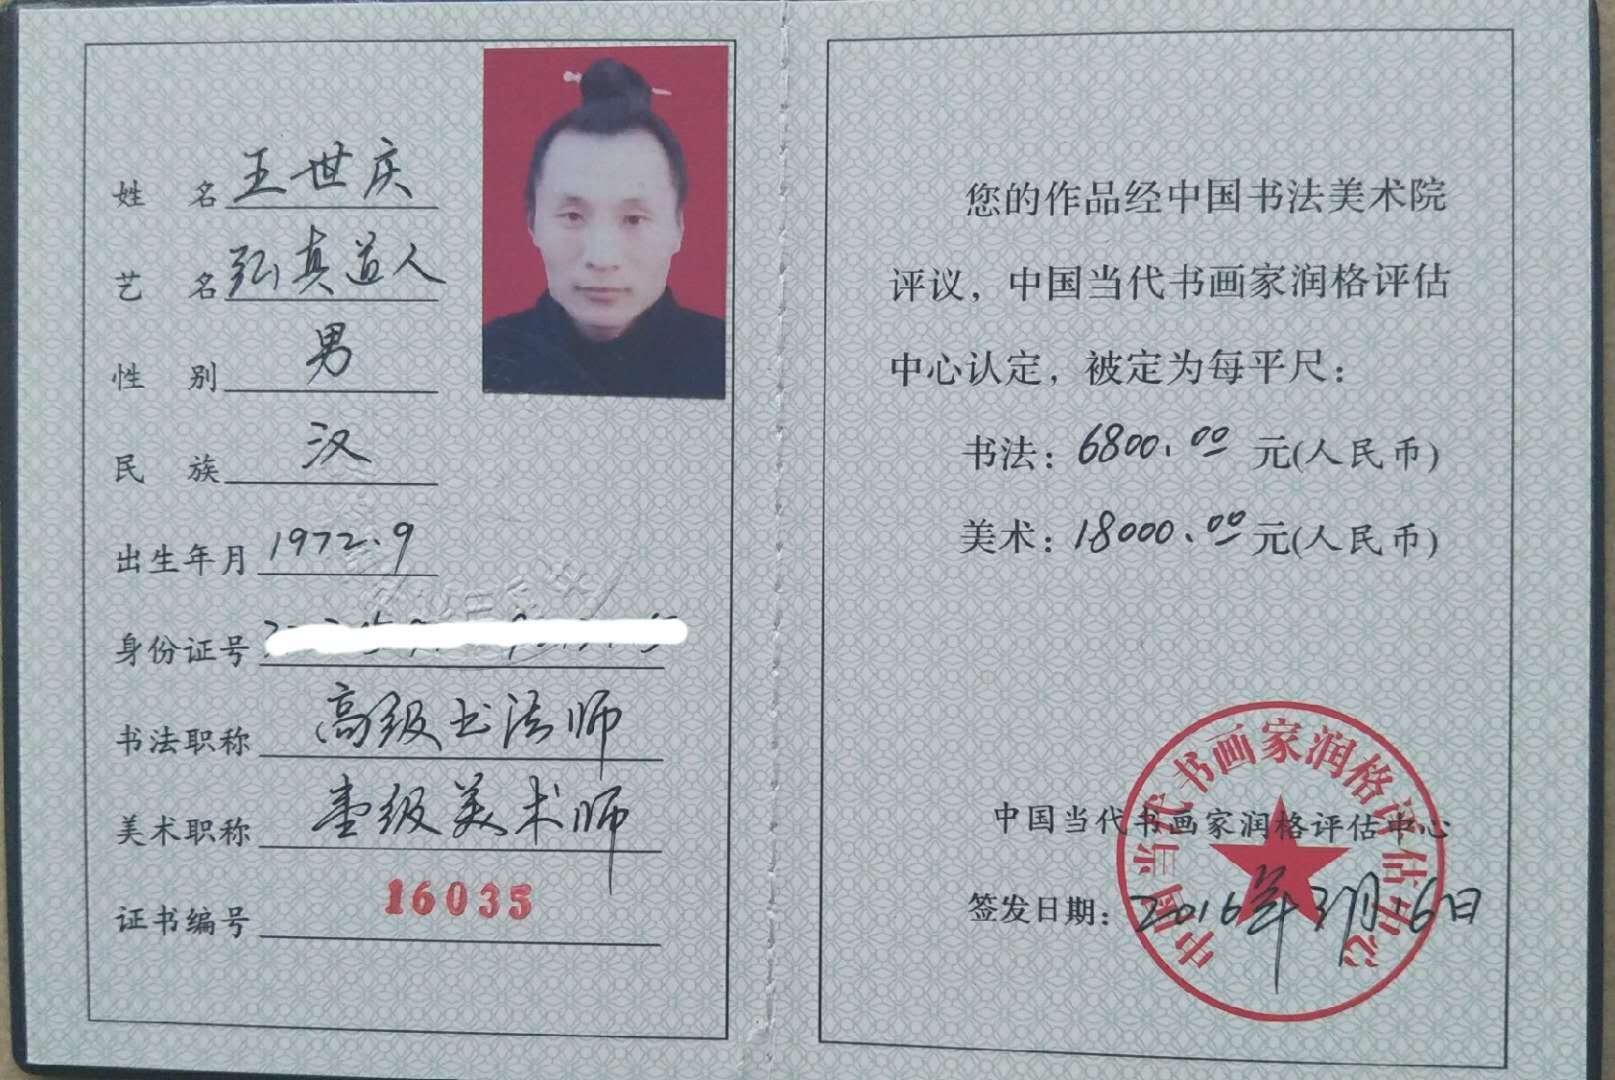 姓 名 王世庆
艺 名 弘真道人
性 别 男
民 族 汉
出生年月 1972.9
身份证号
书法职称 高级书法师
美术职称 壹级美术师
证书编号 16035
您的作品经中国书法美术院
评议，中国当代书画家润格评估
中心认定，被定为每平尺：
书法：6800.00 元(人民币)
美术：18000.00 元(人民币)
中国当代书画家润格评估中心
签发日期：2016年3月16日
中国当代书画家润格评估中心